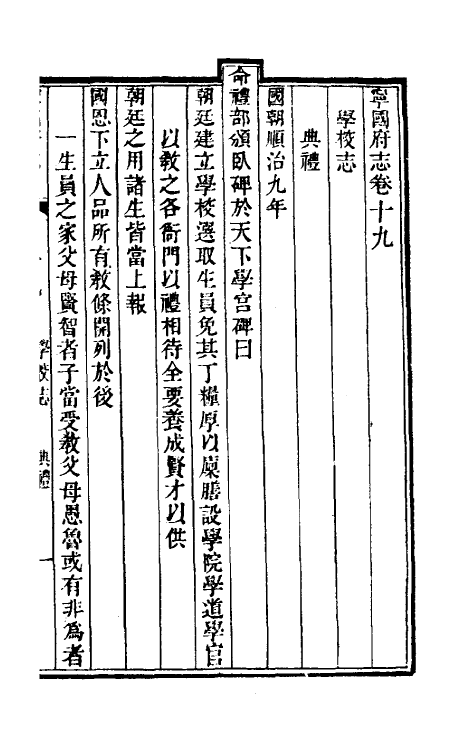 寧國府志卷十九
學校志
典禮
國朝順治九年
命禮部頒臥碑於天下學宮碑曰
朝廷建立學校選取生員免其丁糧厚以廩膳設學院學道學官
以敎之各衙門以禮相待全要養成賢才以供
朝廷之用諸生皆當上報
國恩下立人品所有敎條開列於後
一生員之家父母賢智者子當受敎父母愚魯或有非爲者
學校志 典禮 一